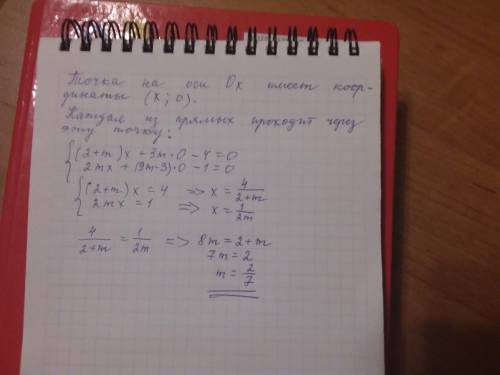 Точка на оси Ox имеет коор-
динаты (x; 0).
Каждая из прямых проходит через
эту точку:
{(2+m)x + 3m·0 - 4 = 0
2mx + (9m-3)·0 - 1 = 0
{(2+m)x = 4 => x = 4/(2+m)
2mx = 1 => x = 1/(2m)
4/(2+m) = 1/(2m) => 8m = 2+m
7m = 2
m = 2/7